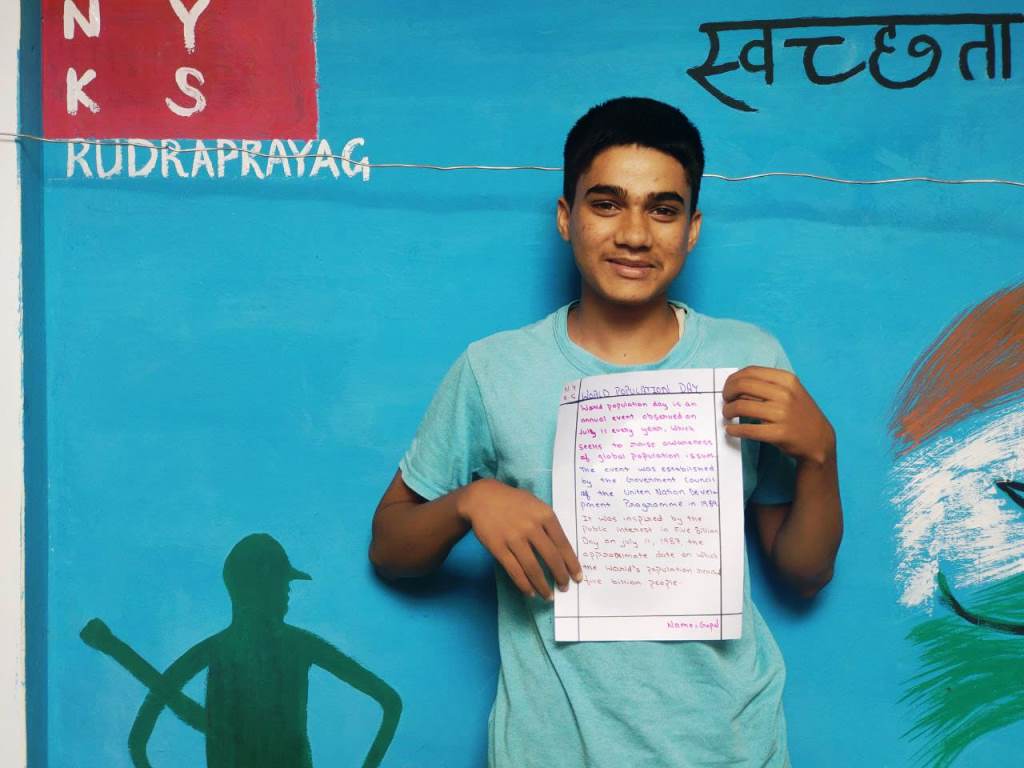 N Y
K S
RUDRAPRAYAG
स्वच्छता
N Y
K S
WORLD POPULATION DAY
World population day is an
annual event observed on
July 11 every year, which
seeks to raise awareness
of global population issues.
The event was established
by the Government Council
of the Uniten Nation Develo-
pment Programme in 1989.
It was inspired by the
public interest in Five Billion
Day on july 11, 1987, the
approximate date on which
the world's population
five billion people.
Name: Gopal